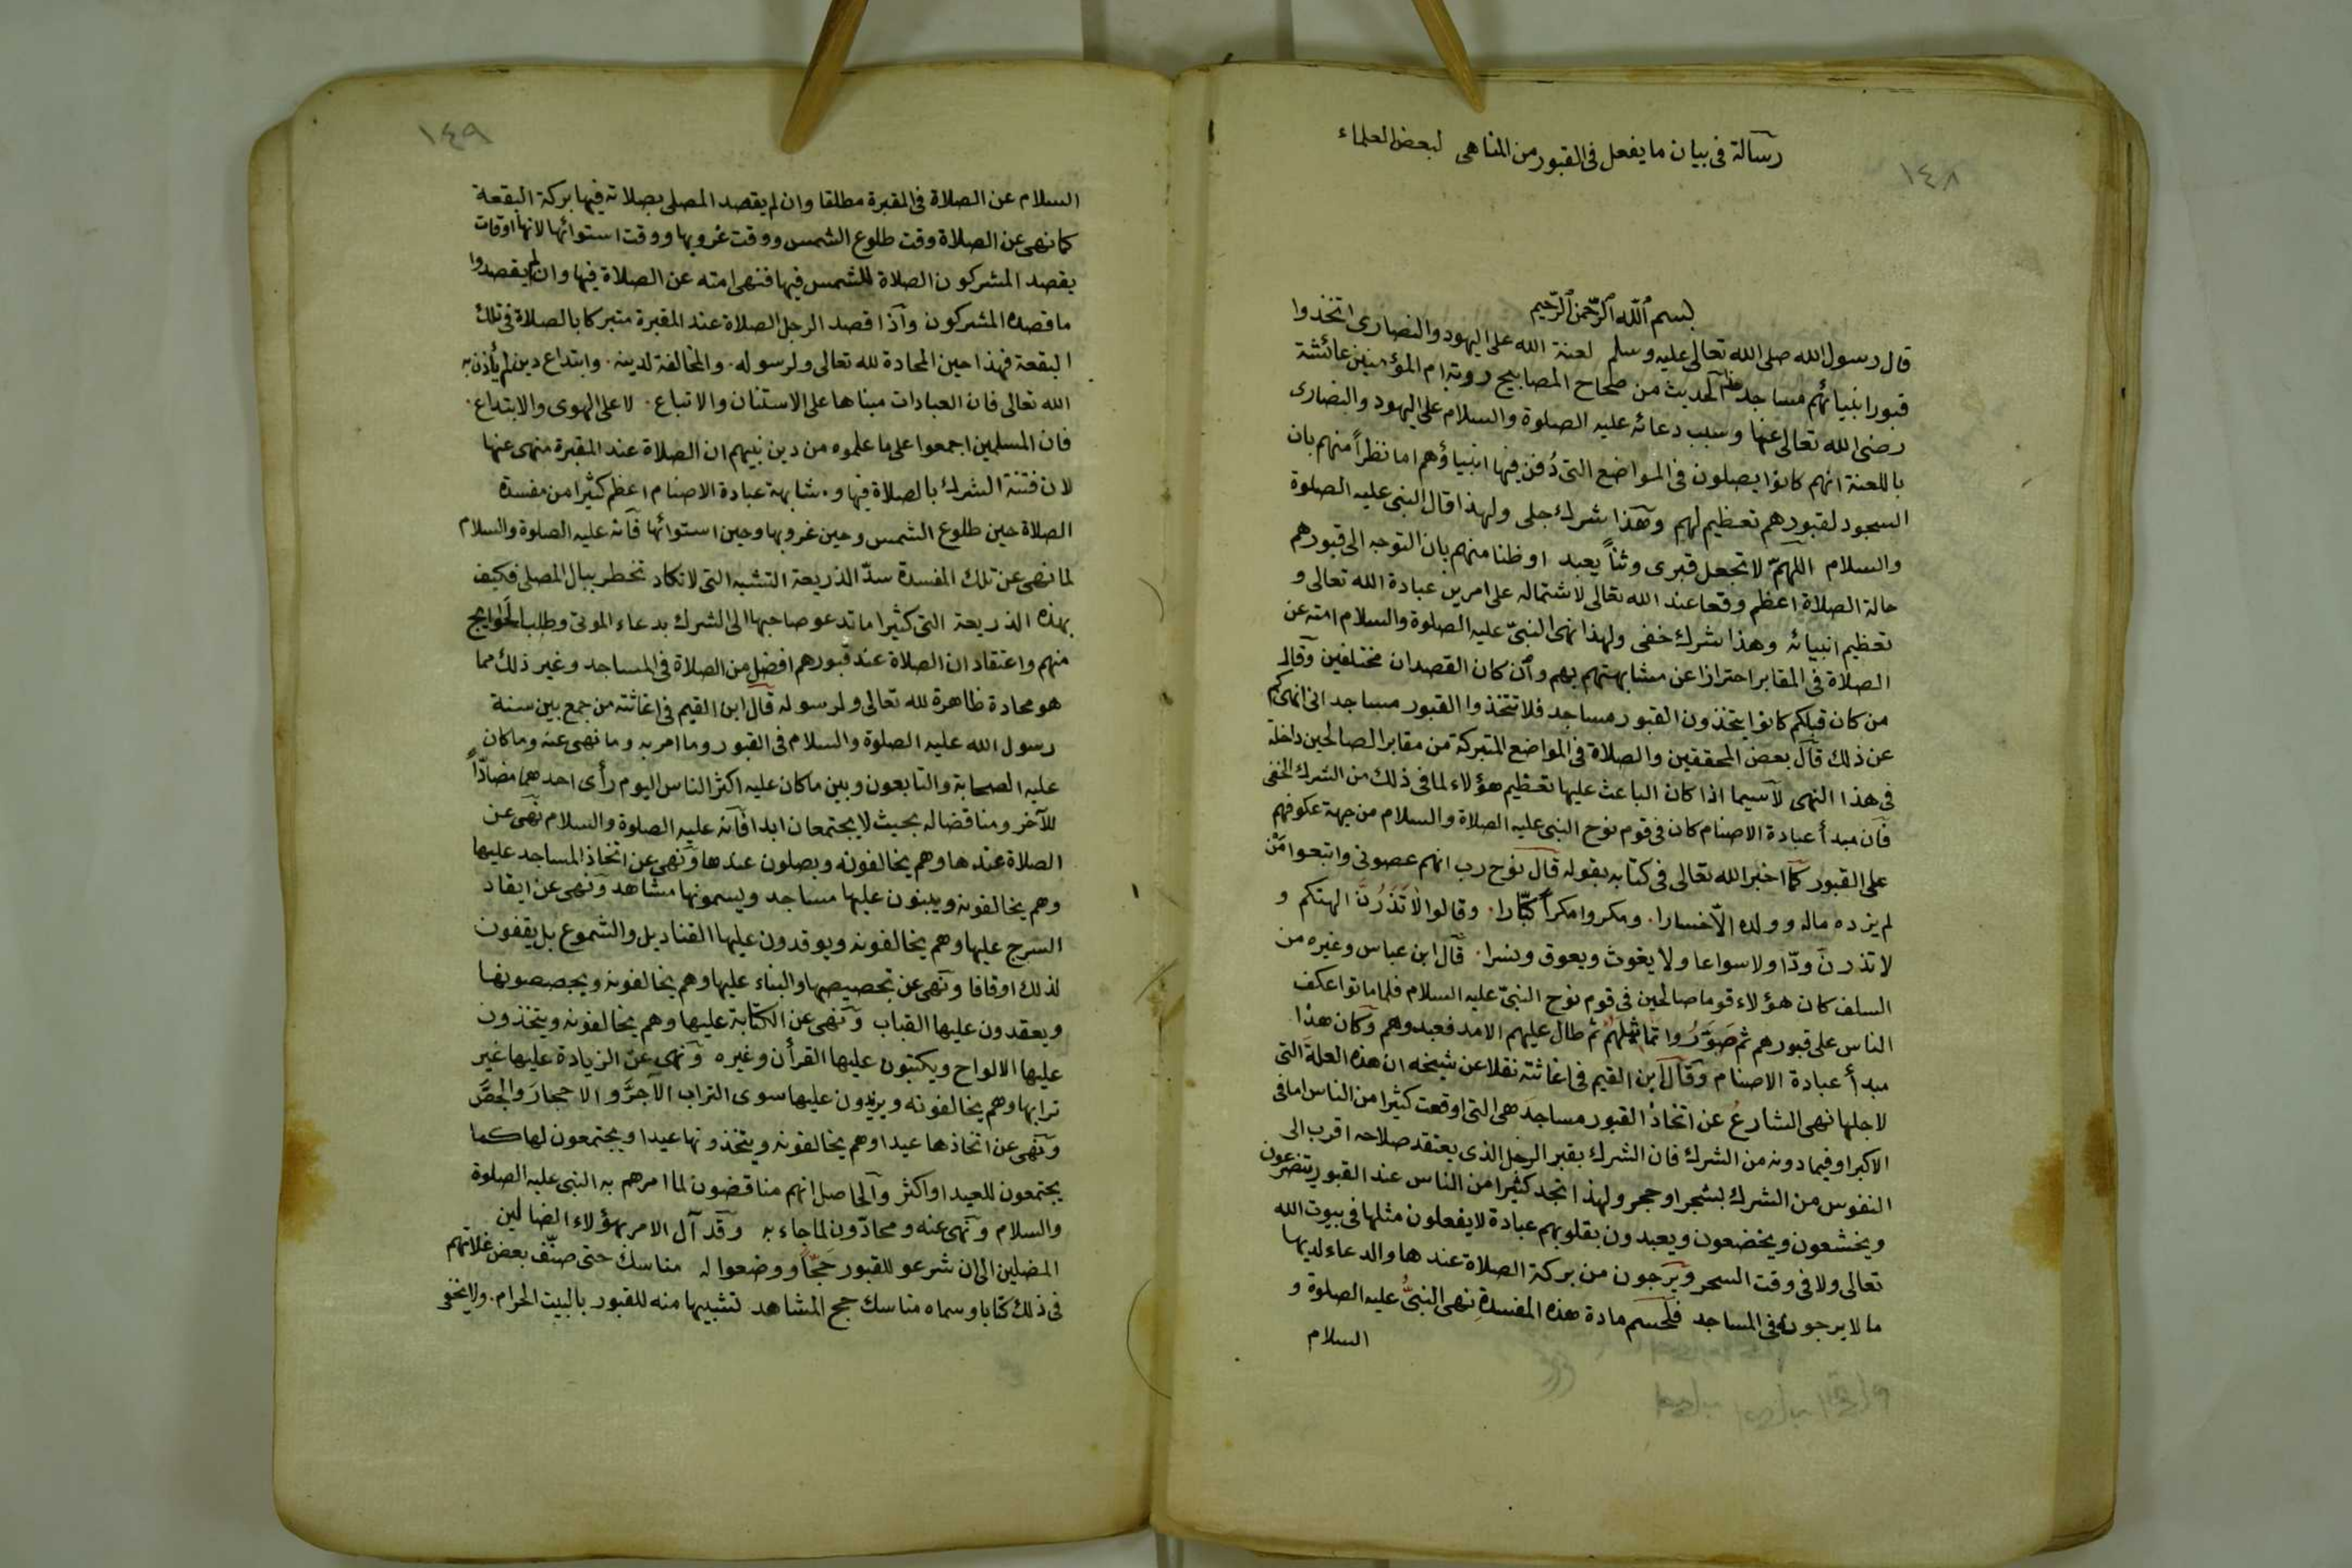 ١٤٨
رسالة فى بيان ما يفعل فى القبور من المناهى لبعض العلماء
بسم الله الرحمن الرحيم
قال رسول الله صلى الله تعالى عليه وسلم لعنة الله على اليهود والنصارى اتخذوا
قبور انبيائهم مساجد الحديث من صحاح المصابيح روته ام المؤمنين عائشة
رضى الله تعالى عنها وسبب دعائه عليه الصلوة والسلام على اليهود والنصارى
باللعنة انهم كانوا يصلون فى المواضع التى دُفن فيها انبياؤهم اما نظراً منهم بان
السجود لقبورهم تعظيم لهم وهذا شرك جلى ولهذا قال النبى عليه الصلوة
والسلام اللهمّ لا تجعل قبرى وثناً يعبد او ظنا منهم بان التوجه الى قبورهم
حالة الصلاة اعظم وقعا عند الله تعالى لاشتماله على امرين عبادة الله تعالى و
تعظيم انبيائه وهذا شرك خفى ولهذا نهى النبىّ عليه الصلوة والسلام امته عن
الصلاة فى المقابر احترازا عن مشابهتهم بهم وان كان القصدان مختلفين وقال
من كان قبلكم كانوا يتخذون القبور مساجد فلا تتخذوا القبور مساجد انى انهيكم
عن ذلك قال بعض المحققين والصلاة فى المواضع المتبركة من مقابر الصالحين داخلة
فى هذا النهى لاسيما اذا كان الباعث عليها تعظيم هؤلاء لما فى ذلك من الشرك الخفى
فان مبدأ عبادة الاصنام كان فى قوم نوح النبى عليه الصلاة والسلام من جهة عكوفهم
على القبور كما اخبر الله تعالى فى كتابه بقوله قال نوح رب انهم عصونى واتبعوا مَنْ
لم يزده ماله وولده الاّ خسارا. ومكروا مكراً كبّارا. وقالوا لا تَذَرُنَّ الهتكم و
لا تذرنّ ودّا ولا سواعا ولا يغوث ويعوق ونسرا. قال ابن عباس وغيره من
السلف كان هؤلاء قوما صالحين فى قوم نوح النبىّ عليه السلام فلما ماتوا عكف
الناس على قبورهم ثم صَوَّرُوا تماثيلهُمْ ثم طال عليهم الامد فعبدوهم وكان هذا
مبدأ عبادة الاصنام وقال ابن القيم فى اغاثته نقلا عن شيخه ان هذه العلة التى
لاجلها نهى الشارعُ عن اتخاذ القبور مساجدَ هى التى اوقعت كثيرا من الناس اما فى
الاكبر او فيما دونه من الشرك فان الشرك بقبر الرجل الذى يعتقد صلاحه اقرب الى
النفوس من الشرك بشجر او حجر ولهذا تجد كثيرا من الناس عند القبور يتضرعون
ويخشعون ويخضعون ويعبدون بقلوبهم عبادة لا يفعلون مثلها فى بيوت الله
تعالى ولا فى وقت السحر ويرجون من بركة الصلاة عندها والدعاء لديها
ما لا يرجونه فى المساجد فلحسم مادة هذه المفسدةِ نهى النبىُّ عليه الصلوة و
السلام
١٤٩
السلام عن الصلاة فى المقبرة مطلقا وان لم يقصد المصلى بصلاته فيها بركة البقعة
كما نهى عن الصلاة وقت طلوع الشمس ووقت غروبها ووقت استوائها لانها اوقات
يقصد المشركون الصلاة للشمس فيها فنهى امته عن الصلاة فيها وان لم يقصدوا
ما قصده المشركون واذا قصد الرجل الصلاة عند المقبرة متبركا بالصلاة فى تلك
البقعة فهذا حين المحادة لله تعالى ولرسوله. والمخالفة لدينه. وابتداع دين لم يأذن به
الله تعالى فان العبادات مبناها على الاستنان والاتباع. لا على الهوى والابتداع.
فان المسلمين اجمعوا على ما علموه من دين نبيهم ان الصلاة عند المقبرة منهى عنها
لان فتنة الشرك بالصلاة فيها ومشابهة عبادة الاصنام اعظم كثيرا من مفسدة
الصلاة حين طلوع الشمس وحين غروبها وحين استوائها فانه عليه الصلوة والسلام
لما نهى عن تلك المفسدة سدّ الذريعة التشبه التى لا تكاد تخطر ببال المصلى فكيف
بهذه الذريعة التى كثيرا ما تدعو صاحبها الى الشرك بدعاء الموتى وطلب الحَوايج
منهم واعتقاد ان الصلاة عند قبورهم افضل من الصلاة فى المساجد وغير ذلك مما
هو محادة ظاهرة لله تعالى ولرسوله قال ابن القيم فى اغاثته من جمع بين سنة
رسول الله عليه الصلوة والسلام فى القبور وما امر به وما نهى عنه وما كان
عليه الصحابة والتابعون وبين ما كان عليه اكثر الناس اليوم رأى احدهما مضادّاً
للآخر ومناقضا له بحيث لا يجتمعان ابدا فانه عليه الصلوة والسلام نهى عن
الصلاة عندها وهم يخالفونه ويصلون عندها ونهى عن اتخاذ المساجد عليها
وهم يخالفونه ويبنون عليها مساجد ويسمونها مشاهد ونهى عن ايقاد
السرج عليها وهم يخالفونه ويوقدون عليها القناديل والشموع بل يقفون
لذلك اوقافا ونهى عن تجصيصها والبناء عليها وهم يخالفونه ويجصصونها
ويعقدون عليها القباب ونهى عن الكتابة عليها وهم يخالفونه ويتخذون
عليها الالواح ويكتبون عليها القرأن وغيره ونهى عن الزيادة عليها غير
ترابها وهم يخالفونه ويزيدون عليها سوى التراب الآجرَّ والاحجارَ والجصَّ
ونهى عن اتخاذها عيدا وهم يخالفونه ويتخذونها عيدا ويجتمعون لها كما
يجتمعون للعيد او اكثر والحاصل انهم مناقضون لما امرهم به النبى عليه الصلوة
والسلام ونهى عنه ومحادّون لما جاء به وقد آل الامر بهؤلاء الضالين
المضلين الى ان شرعو للقبور حَجّاً ووضعوا له مناسك حتى صنّف بعض غلاتهم
فى ذلك كتابا وسماه مناسك حج المشاهد تشبيها منه للقبور بالبيت الحرام. ولا يخفى